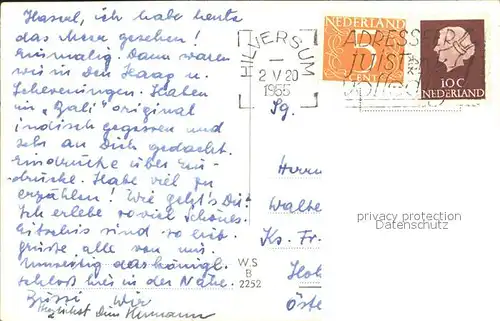 Haserl, ich habe heute
das Meer gesehen!
Einmalig. Dann waren
wir in Den Haag u.
Scheveningen. Haben
in "Bali" original
indisch gegessen und
sehr an Dich gedacht.
Eindrücke über Ein-
drücke. Habe viel zu
erzählen! Wie geht's Dir?
Ich erlebe so viel Schönes.
sind so lieb.
Grüsse alle von mir.
Umseitig das königl.
Schloß hier in der Nähe.
Bussi
Herzlichst Dein Hermann
HILVERSUM
2 V 20
1955
NEDERLAND
3
CENT
10C
NEDERLAND
ADRESSEER
JUIST
EN
VOLLEDIG
Sg.
Herrn
Walte
Ks. Fr.
Hol
Öste
W.S
B
2252
privacy protection
Datenschutz